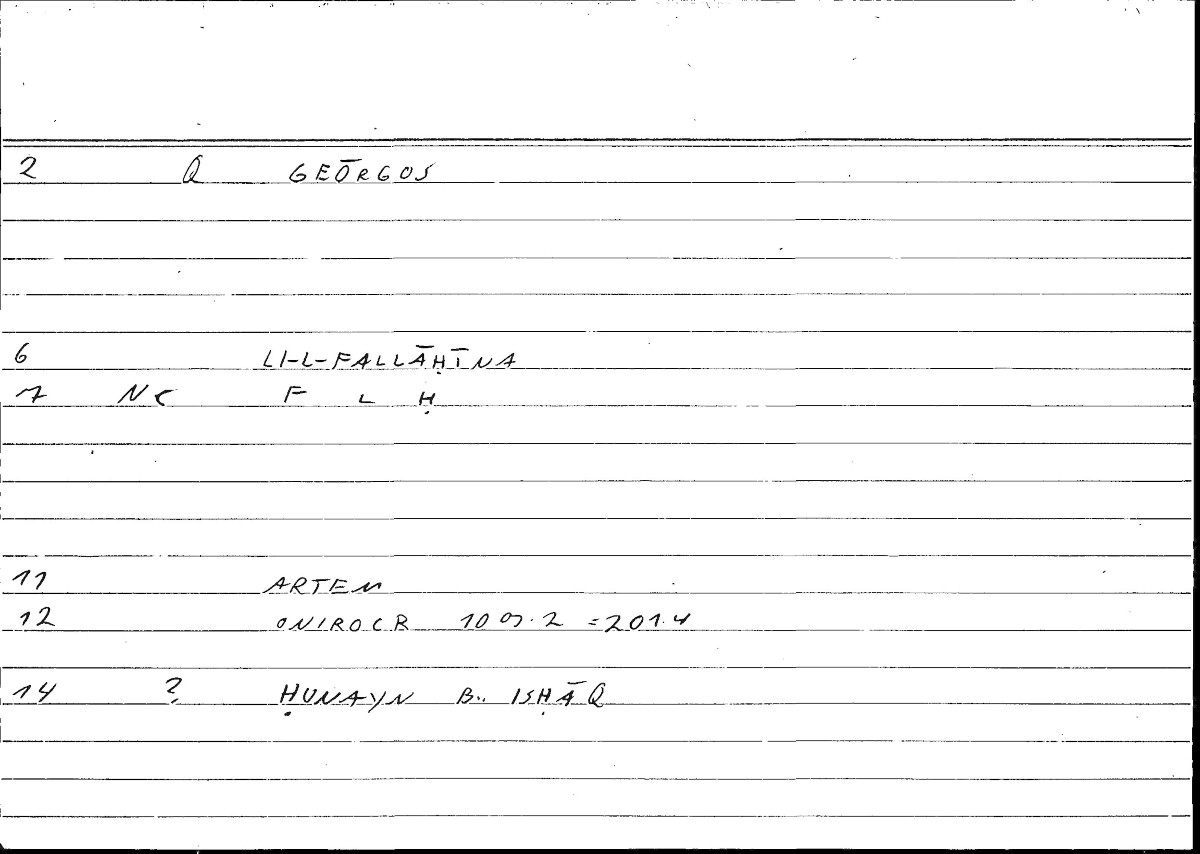 2 Q GEŌRGOS
6 LI-L-FALLĀḤĪNA
7 NC F L Ḥ
11 ARTEM
12 ONIROCR 109.2 =201.4
14 ? ḤUNAYN B. ISḤĀQ